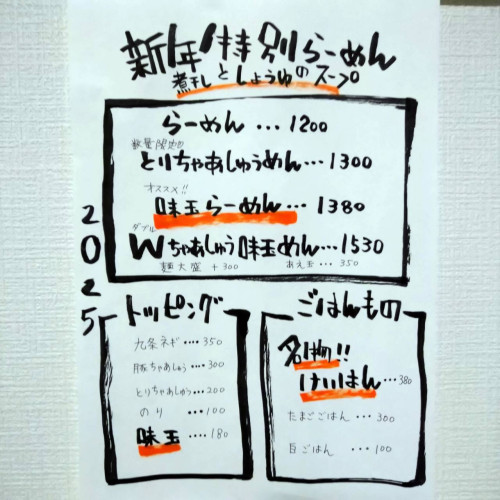 新年特別らーめん
煮干しとしょうゆのスープ
らーめん…1200
数量限定!!
とりちゃあしゅうめん…1300
オススメ!!
味玉らーめん…1380
ダブル
Wちゃあしゅう味玉めん…1530
麺大盛 +300 あえ玉…350
2025
トッピング
九条ネギ‥‥350
豚ちゃあしゅう…300
とりちゃあしゅう…200
のり …100
味玉‥‥180
ごはんもの
名物!!
けいはん…380
たまごごはん…300
白ごはん …100